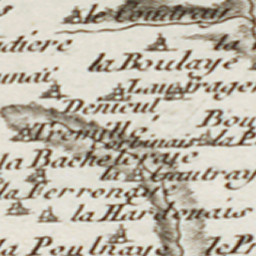 le Coudrair
diere
la
la Boulaye
unaï
Lau
rager
Denieul
Bou
Tromille
Corbinais
la P
la Bacheleraye
la Gautray
la Ferronaye
la Hardonais
la Poulnaye
le Pr